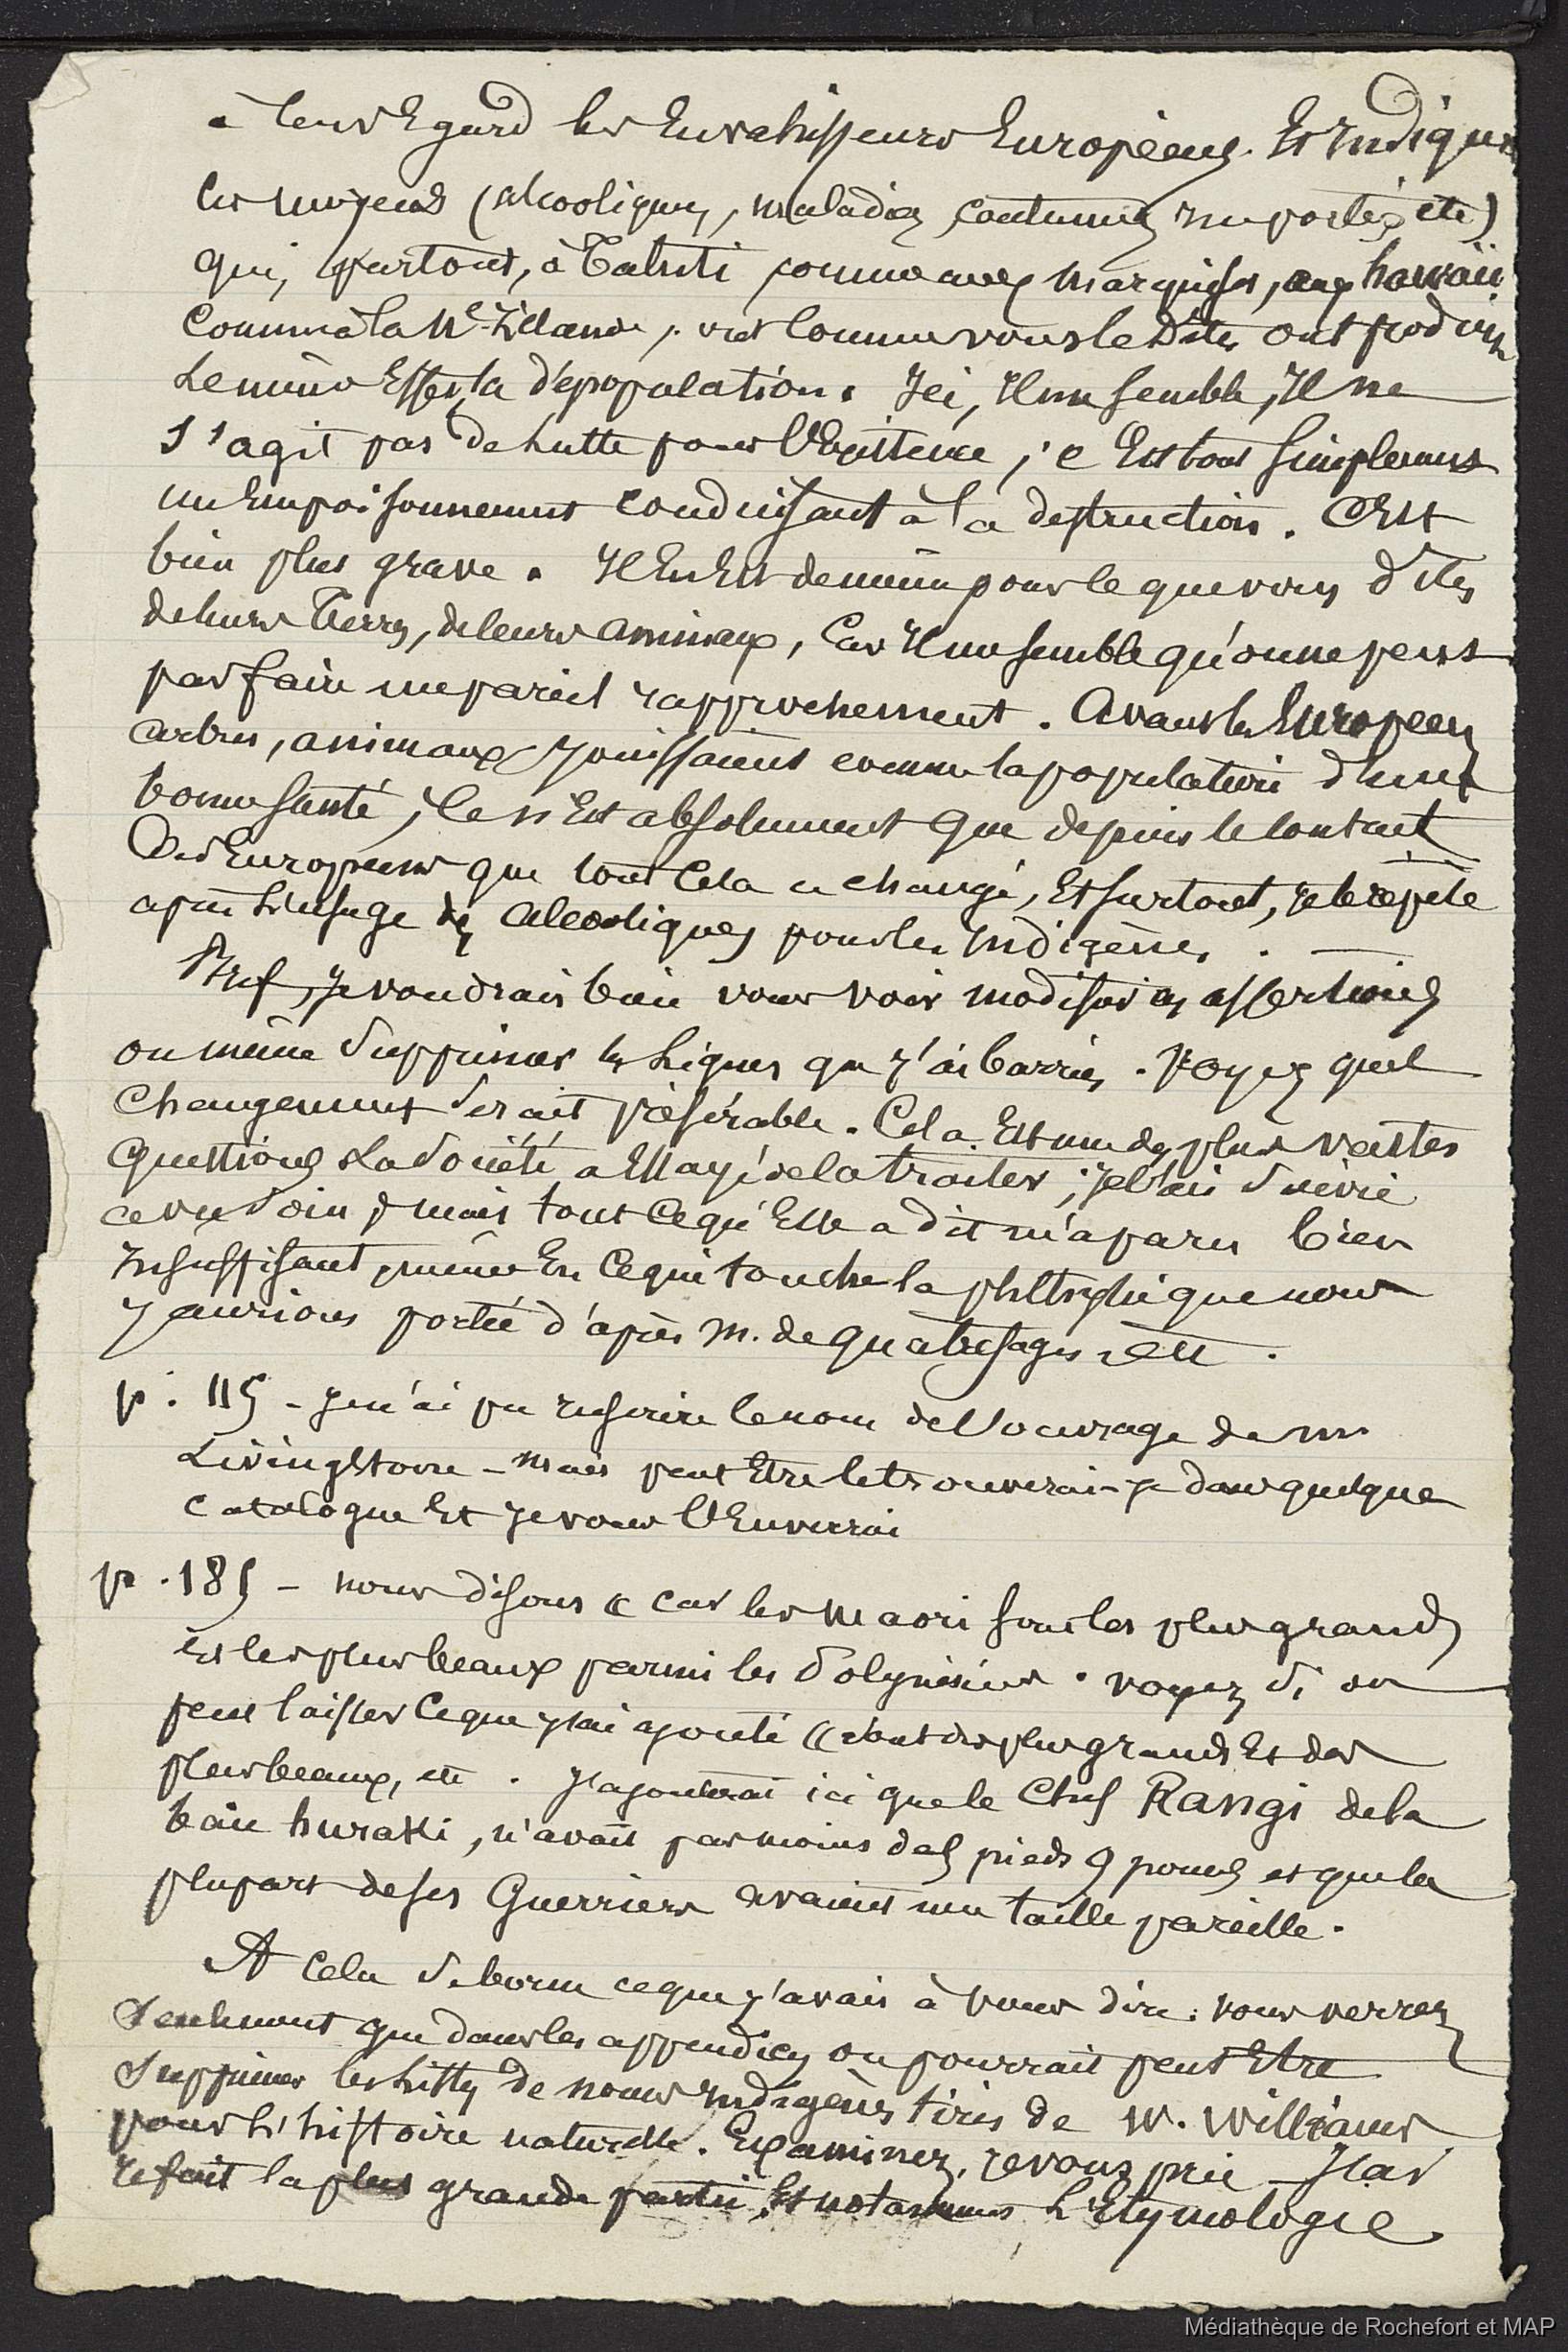 à leur Egard les Envahisseurs Européens. Et Indiquer
les moyens (alcooliques, maladies, coutumes importées etc)
qui, partout, à Tahiti comme aux Marquises, aux hawaii
comme à la Nlle Zélande, ont comme vous le dites ont produit
le même Effet, la dépopulation. Ici, Il me semble, Il ne
s'agit pas de Lutte pour l'Existence, c'Est tout simplement
un Empoisonnement conduisant à la destruction. C'Est
bien plus grave. Il En Est de même pour ce que vous dites
de leurs Terres, de leurs animaux, Car Il me semble qu'on ne peut
pas faire un pareil rapprochement. Avant les Européens
arbres, animaux jouissaient comme la population d'une
bonne santé, ce n'Est absolument que depuis le contact
Des Européens que tout Cela a changé, Et surtout, je le répète
après L'usage des alcooliques pour les Indigènes.
Bref, je voudrais bien vous voir modifier ces assertions
ou même supprimer les Lignes que j'ai barrées. Voyez quel
Changement serait préférable. Cela Est une des plus vastes
questions. La Société a Essayé de la traiter; je l'ai suivie
avec soin, mais tout ce qu'Elle a dit m'a paru bien
Insuffisant, même En ce qui touche la phtisie que nous
y aurions portée d'après M. de Quatrefages, etc.
p. 115 - je n'ai pu inscrire le nom de l'ouvrage de M.
Livingstone - Mais peut Etre le trouverai-je dans quelque
catalogue Et je vous l'Enverrai
p. 185 - nous disons « car les Maori sont les plus grands
Et les plus beaux parmi les Polynésiens. voyez si on
peut laisser ce que j'ai ajouté « sont des plus grands Et des
plus beaux, etc. J'ajouterai ici que le Chef Rangi de la
baie huraki, n'avait pas moins de 5 pieds 9 pouces et que la
plupart de ses Guerriers avaient une taille pareille.
A cela se borne ce que j'avais à vous dire: vous verrez
seulement que dans les appendices on pourrait peut Etre
supprimer les Listes de noms Indigènes tirés de W. Williams
pour L'histoire naturelle. Examinez, je vous prie - J'ai
refait la plus grande partie, Et notamment L'Etymologie